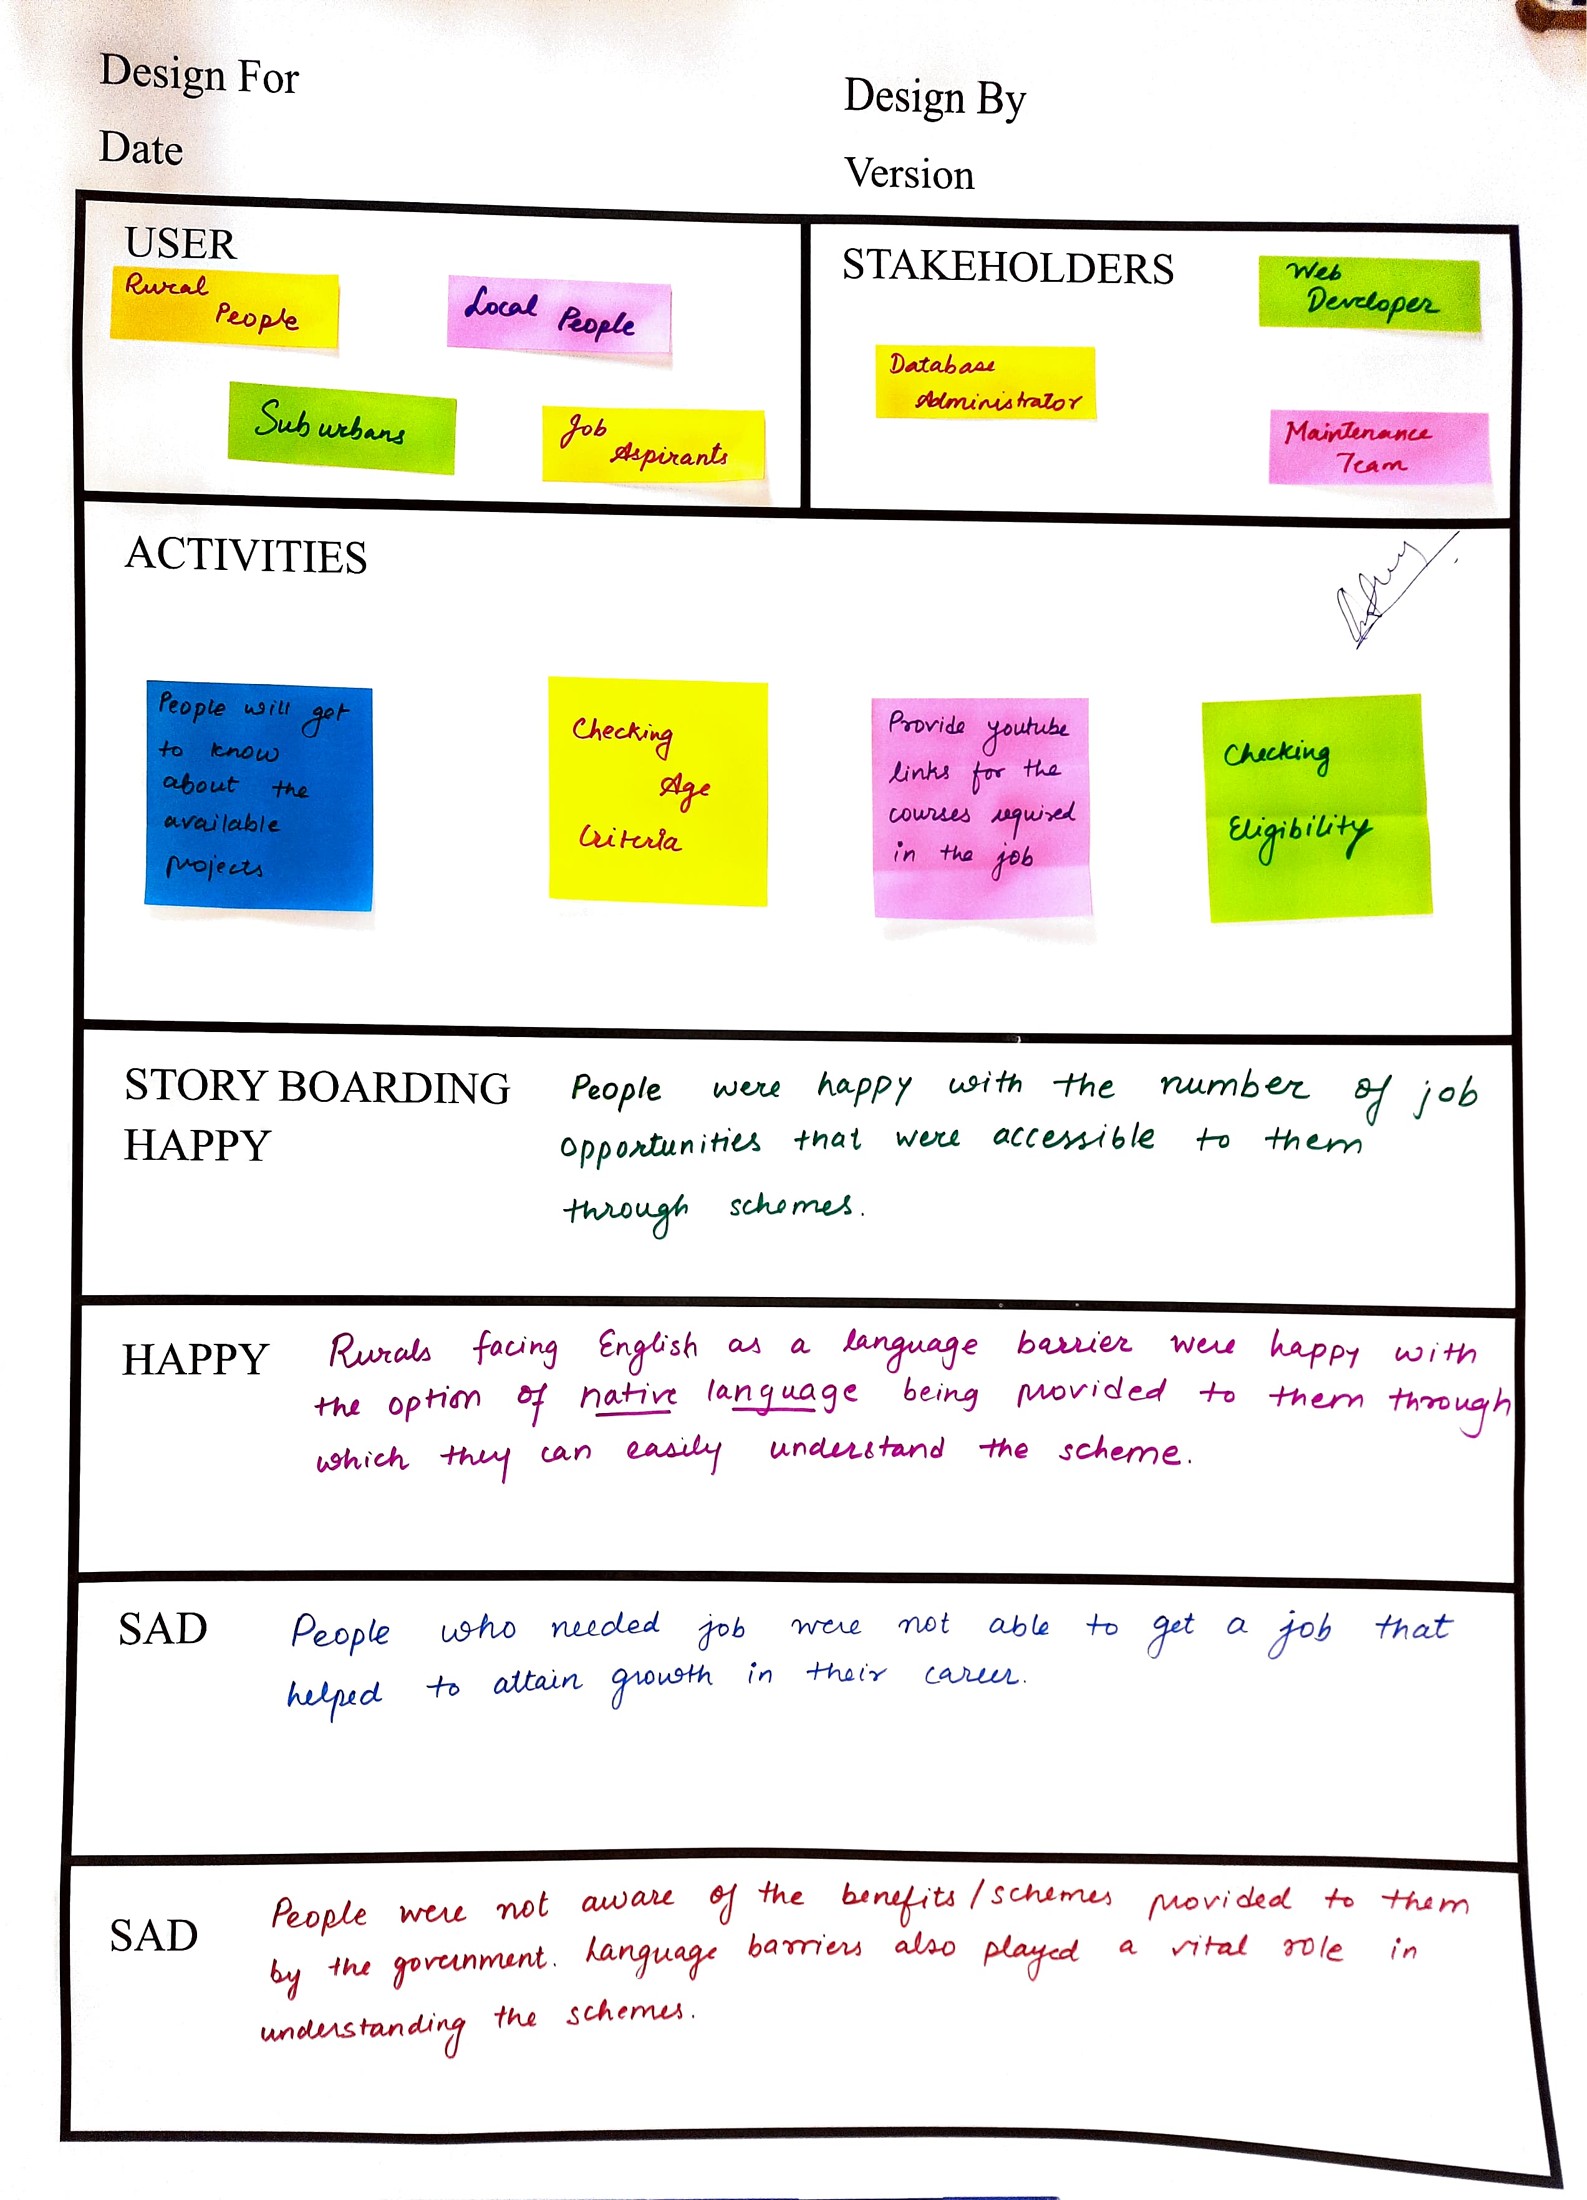 Design For
Design By
Date
Version
USER
Rural
People
Local People
Suburbans
Job
Aspirants
STAKEHOLDERS
Web
Developer
Database
Administrator
Maintenance
Team
ACTIVITIES
People will get
to know
about the
available
projects
Checking
Age
Criteria
Provide youtube
links for the
courses required
in the job
Checking
Eligibility
STORY BOARDING
HAPPY
People were happy with the number of job
opportunities that were accessible to them
through schemes.
HAPPY
Rurals facing English as a language barrier were happy with
the option of native language being provided to them through
which they can easily understand the scheme.
SAD
People who needed job were not able to get a job that
helped to attain growth in their career.
SAD
People were not aware of the benefits/schemes provided to them
by the government. Language barriers also played a vital role in
understanding the schemes.